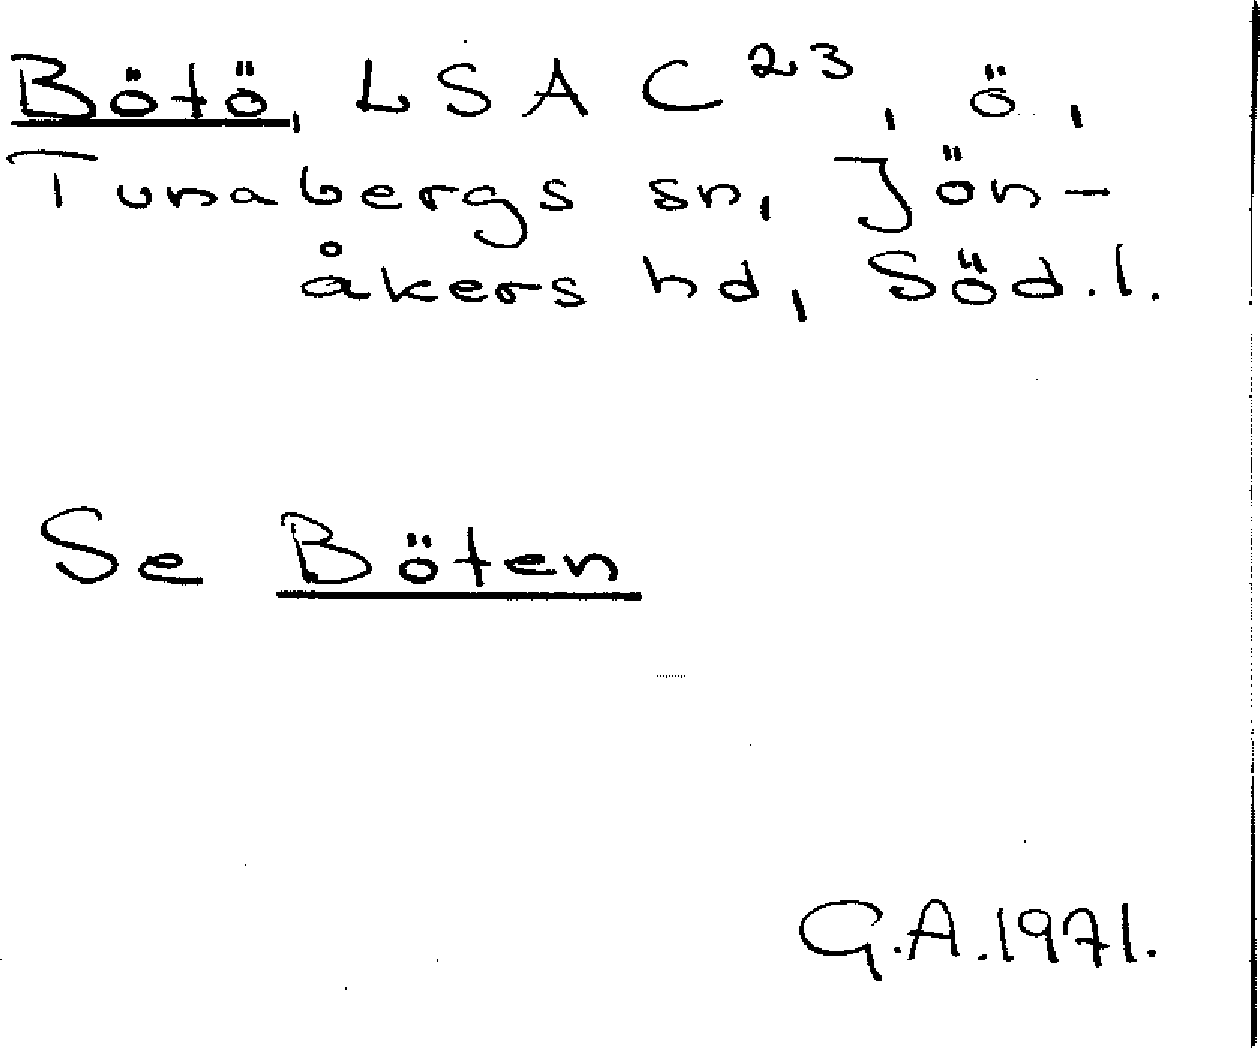 Bötö, LSA C²³, ö,
Tunabergs sn, Jön-
åkers hd, Söd.l.
Se Böten
G.A.1971.